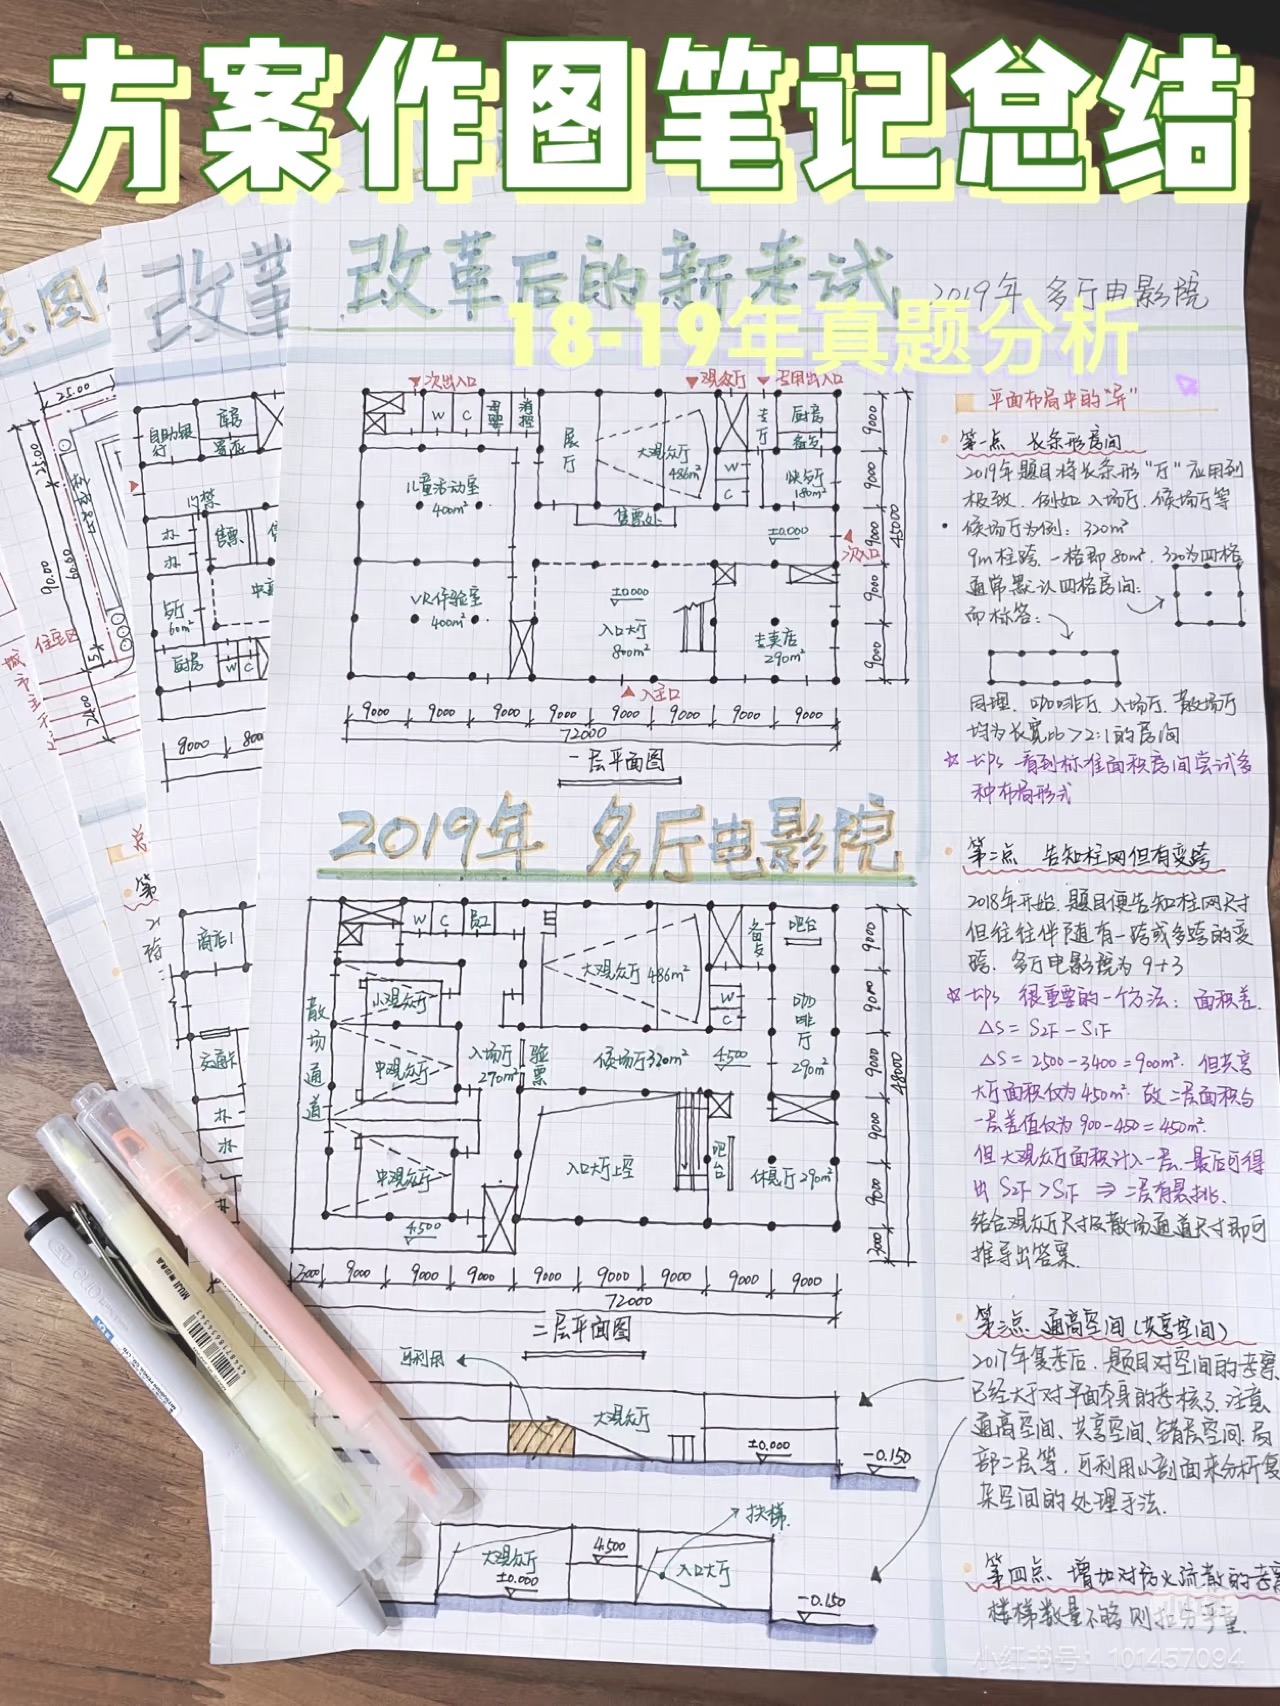 方案作图笔记总结
改革后的新考试
2019年 多厅电影院
18-19年真题分析
次出入口
观众厅
专用出入口
W
C
母婴
消控
展厅
大观众厅
486m²
专厅
厨房
备餐
W
C
快餐厅
180m²
儿童活动室
400m²
售票处
±0.000
次入口
VR体验室
400m²
±0.000
入口大厅
800m²
专卖店
290m²
入主口
9000 9000 9000 9000 9000 9000 9000 9000
72000
9000
9000
9000
9000
9000
45000
一层平面图
2019年 多厅电影院
W
C
大观众厅 486m²
吧台
小观众厅
散场通道
中观众厅
入场厅
290m²
验票
候场厅320m²
4.500
W
C
咖啡厅
290m²
中观众厅
入口大厅上空
吧台
休息厅290m²
4.500
3000 9000 9000 9000 9000 9000 9000 9000 9000
72000
9000
9000
9000
9000
9000
3000
48000
二层平面图
可利用
大观众厅
±0.000
-0.150
扶梯
大观众厅
±0.000
4.500
入口大厅
-0.150
平面布局中的“异”
第一点 长条形房间
2019年题目将长条形“厅”应用到
极致. 例如入场厅. 候场厅等
候场厅为例: 320m²
9m柱跨. 一格即80m². 320为四格
通常默认四格房间:
而标答:
同理. 咖啡厅. 入场厅. 散场厅
均为长宽比>2:1的房间
tips 看到标准面积房间尝试多
种布局形式
第二点 告知柱网但有变跨
2018年开始. 题目便告知柱网尺寸
但往往伴随有一跨或多跨的变
跨. 多厅电影院为9+3
tips 很重要的一个方法: 面积差.
△S=S2F-S1F
△S=2500-3400=900m². 但共享
大厅面积仅为450m². 故二层面积与
一层差值仅为900-450=450m².
但大观众厅面积计入一层. 最后可得
出 S2F>S1F ⇒ 二层有悬挑.
结合观众厅尺寸及散场通道尺寸即可
推导出答案.
第三点. 通高空间(共享空间)
2017年复考后. 题目对空间的考察
已经大于对平面本身的考核了. 注意
通高空间、共享空间、错层空间. 局
部二层等. 可利用小剖面来分析复
杂空间的处理手法.
第四点. 增加对防火疏散的考察
楼梯数量不够则扣分严重.
小红书号: 101457094
改革
自助银行
库房
门禁
办
办
售票
餐厅
60m²
厨房
W
C
9000
商店1
办
办
25.00
25.00
90.00
60.00
住宅区
MUJI 無印良品
4547718614543